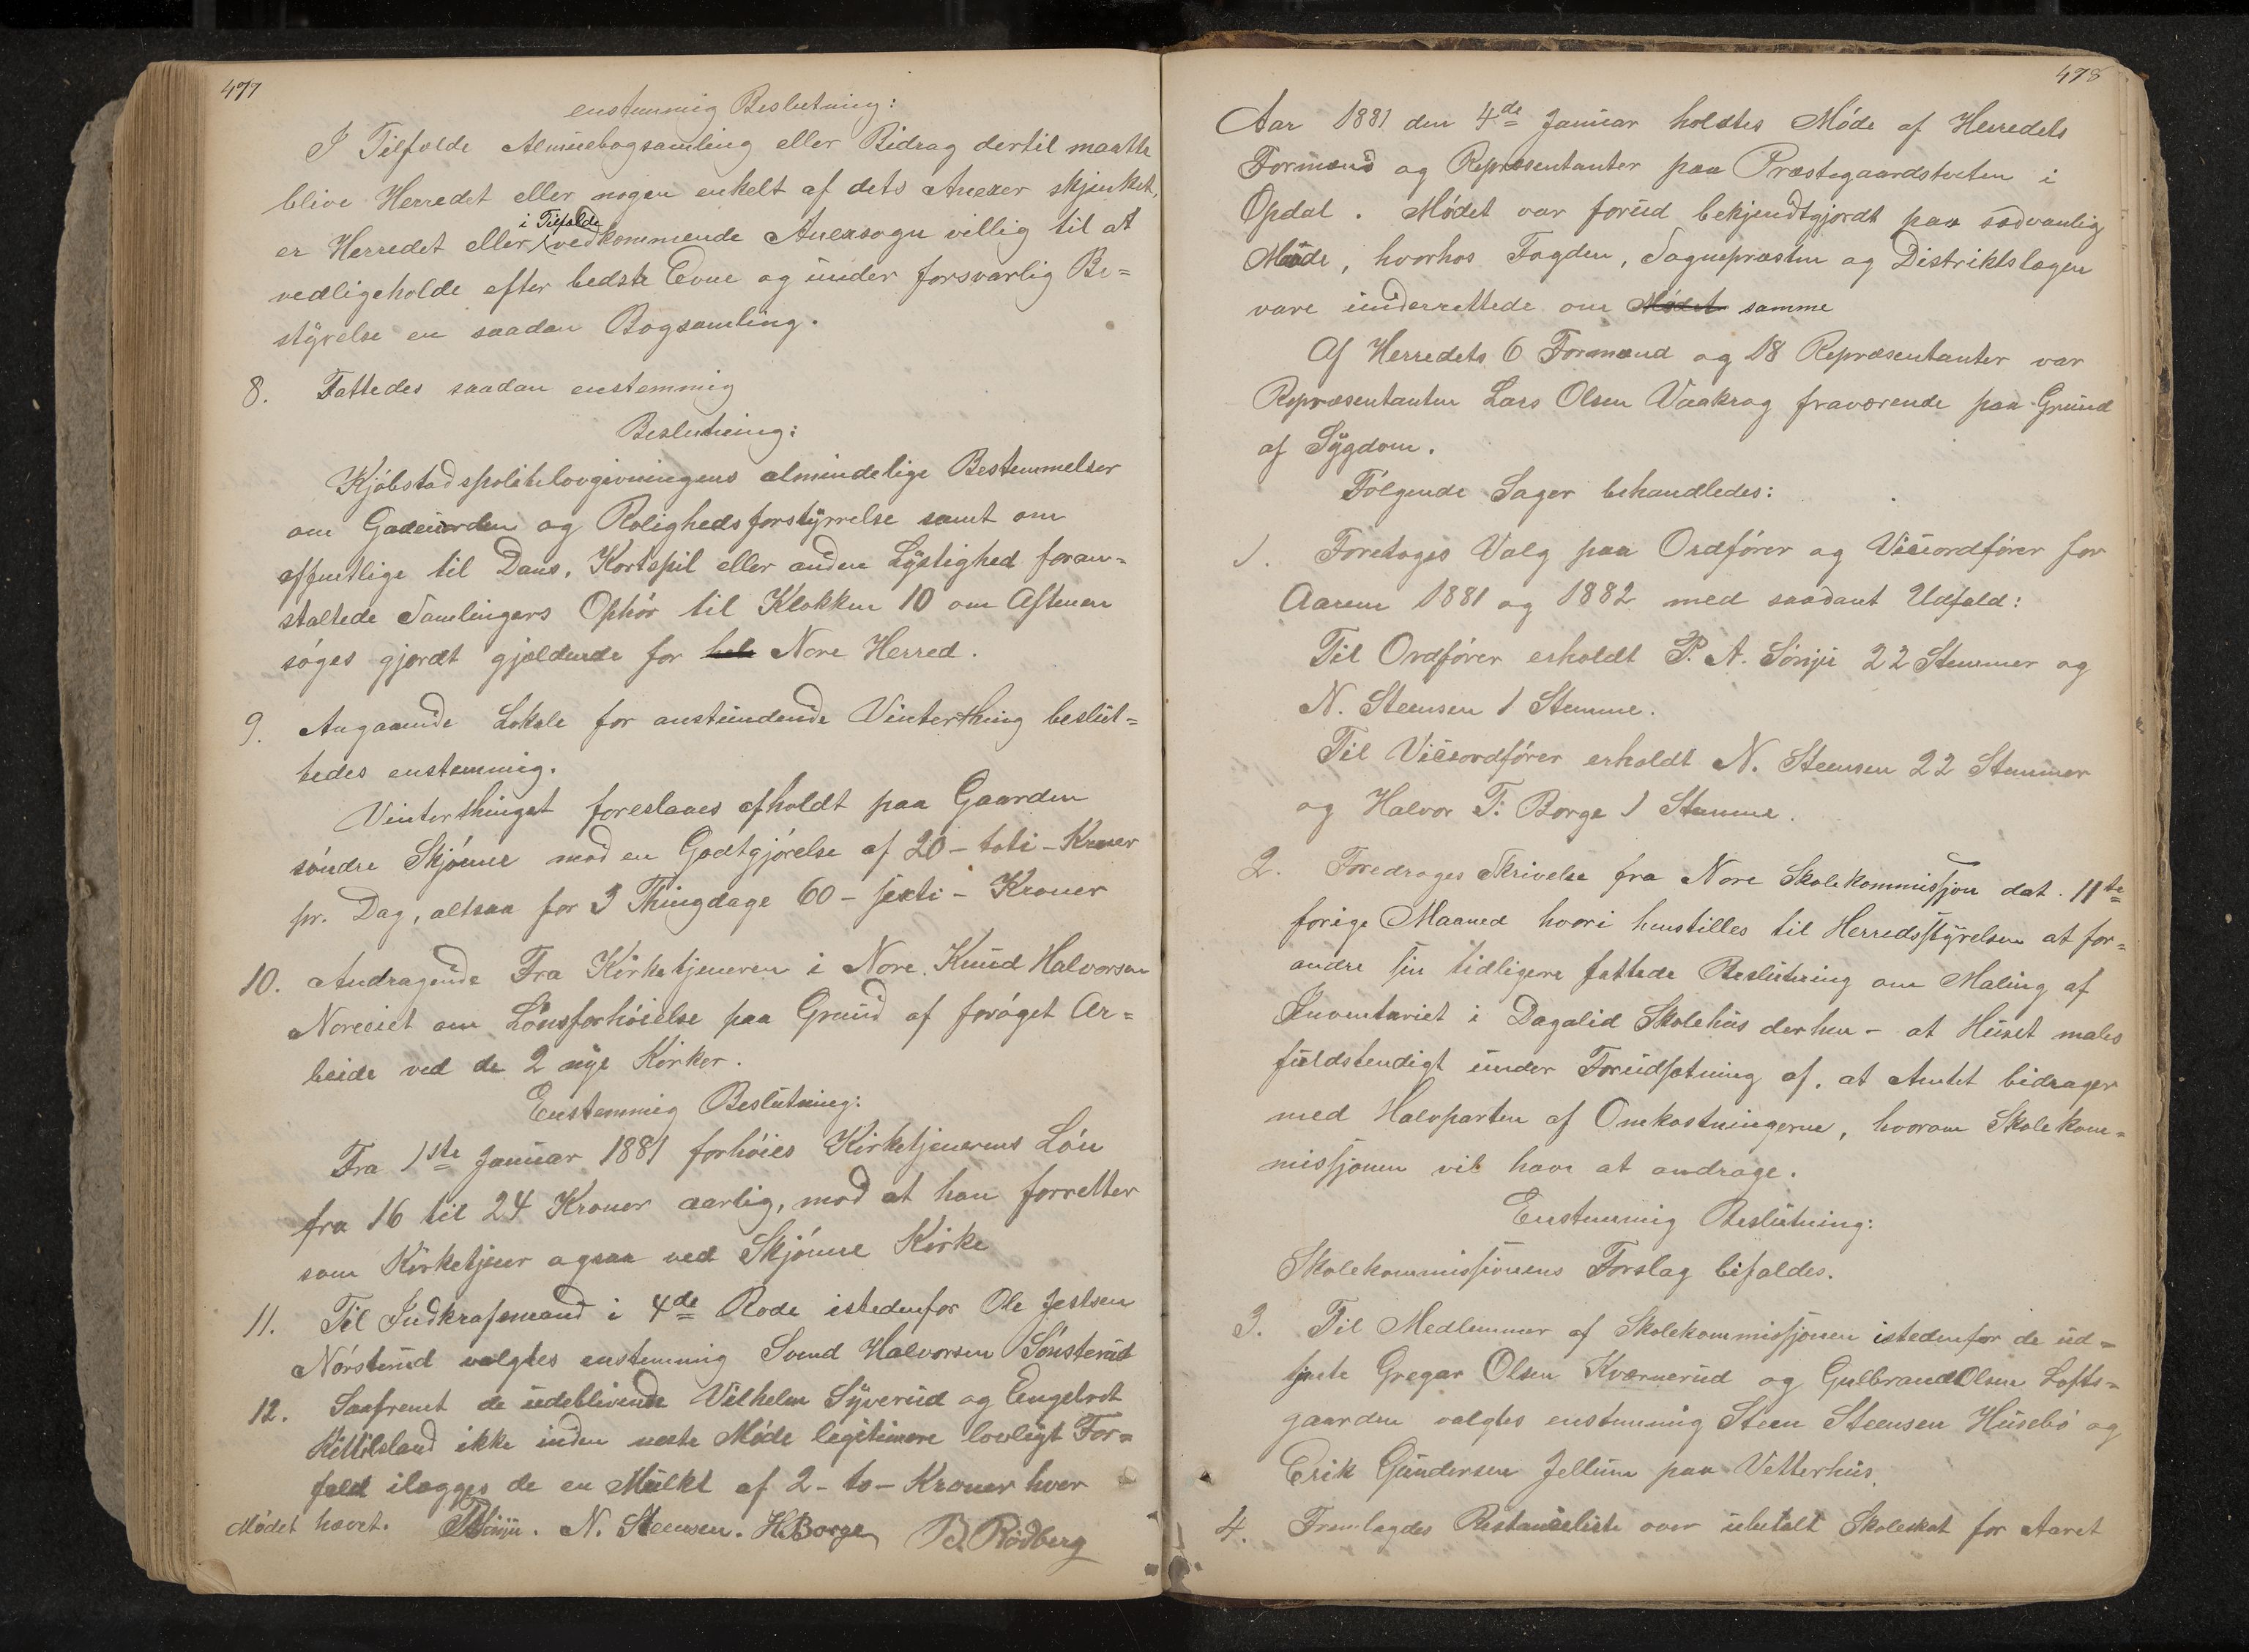 477
enstemmig Beslutning:
I Tilfælde Almuebogsamling eller Bidrag dertil maatte
blive Herredet eller nogen enkelt af dets Anexer skjenket,
er Herredet eller i Tilfælde vedkommende Anexsogn villig til at
vedligeholde efter bedste Evne og under forsvarlig Be=
styrelse en saadan Bogsamling.
8. Fattedes saadan enstemmig
Beslutning:
Kjøbstadspolitilovgivningens almindelige Bestemmelser
om Gadeuorden og Rolighedsforstyrrelse samt om
offentlige til Dans, Kortspil eller anden Lystighed foran=
staltede Samlingers Ophør til Klokken 10 om Aftenen
søges gjordt gjældende for hele Nore Herred.
9. Angaaende Lokale for anstundende Vinterthing beslut=
tedes enstemmig.
Vinterthinget foreslaaes afholdt paa Gaarden
søndre Skjønne mod en Godtgjørelse af 20 - toti - Kroner
pr. Dag, altsaa for 3 Thingdage 60 - sexti - Kroner
10. Andragende Fra Kirketjeneren i Nore Knud Halvorsen
Noreeiet om Lønsforhøielse paa Grund af forøget Ar=
beide ved de 2 nye Kirker.
Enstemmig Beslutning:
Fra 1ste Januar 1881 forhøies Kirketjenerens Løn
fra 16 til 24 Kroner aarlig, mod at han forretter
som Kirketjener ogsaa ved Skjønne Kirke
11. Til Indkrafsmand i 4de Rode istedenfor Ole Jestsen
Nørsterud valgtes enstemmig Svend Halvorsen Sønsterud
12. Saafremt de udeblivende Vilhelm Syverud og Engebret
Kittilsland ikke inden neste Møde legitimere lovligt For=
fald ilægges de en Mulkt af 2 - to - Kroner hver
Mødet hævet. Sønju. N. Steensen. H. Borge B. Rödberg
478
Aar 1881 den 4de Januar holdtes Møde af Herredets
Formænd og Repræsentanter paa Præstegaardstuten i
Opdal. Mødet var forud bekjendtgjordt paa sædvanlig
Maade, hvorhos Fogden, Sognepræsten og Distriktslægen
vare underrettede om Mødet samme
Af Herredets 6 Formænd og 18 Repræsentanter var
Repræsentanten Lars Olsen Vaakrag fraværende paa Grund
af Sygdom.
Følgende Sager behandledes:
1. Foretoges Valg paa Ordfører og Viceordfører for
Aarene 1881 og 1882 med saadant Udfald:
Til Ordfører erholdt P. A. Sønju 22 Stemmer og
N. Steensen 1 Stemme.
Til Viceordfører erholdt N. Steensen 22 Stemmer
og Halvor T. Borge 1 Stemme.
2. Foredroges Skrivelse fra Nore Skolekommissjon dat. 11te
forige Maaned hvori henstilles til Herredsstyrelsen at for=
andre sin tidligere fattede Beslutning om Maling af
Inventariet i Dagalid Skolehus derhen - at Huset males
fuldstendigt under Forudsætning af, at Amtet bidrager
med Halvparten af Omkostningerne, hvorom Skolekom=
missjonen vil have at andrage.
Enstemmig Beslutning:
Skolekommissionens Forslag bifaldes.
3. Til Medlemmer af Skolekommissjonen istedenfor de ud=
tjente Gregar Olsen Kværnerud og Gulbrand Olsen Lofts=
gaarden valgtes enstemmig Steen Steensen Husebø og
Erik Gundersen Jellum paa Vetterhus.
4. Fremlagdes Restanceliste over ubetalt Skoleskat for Aaret